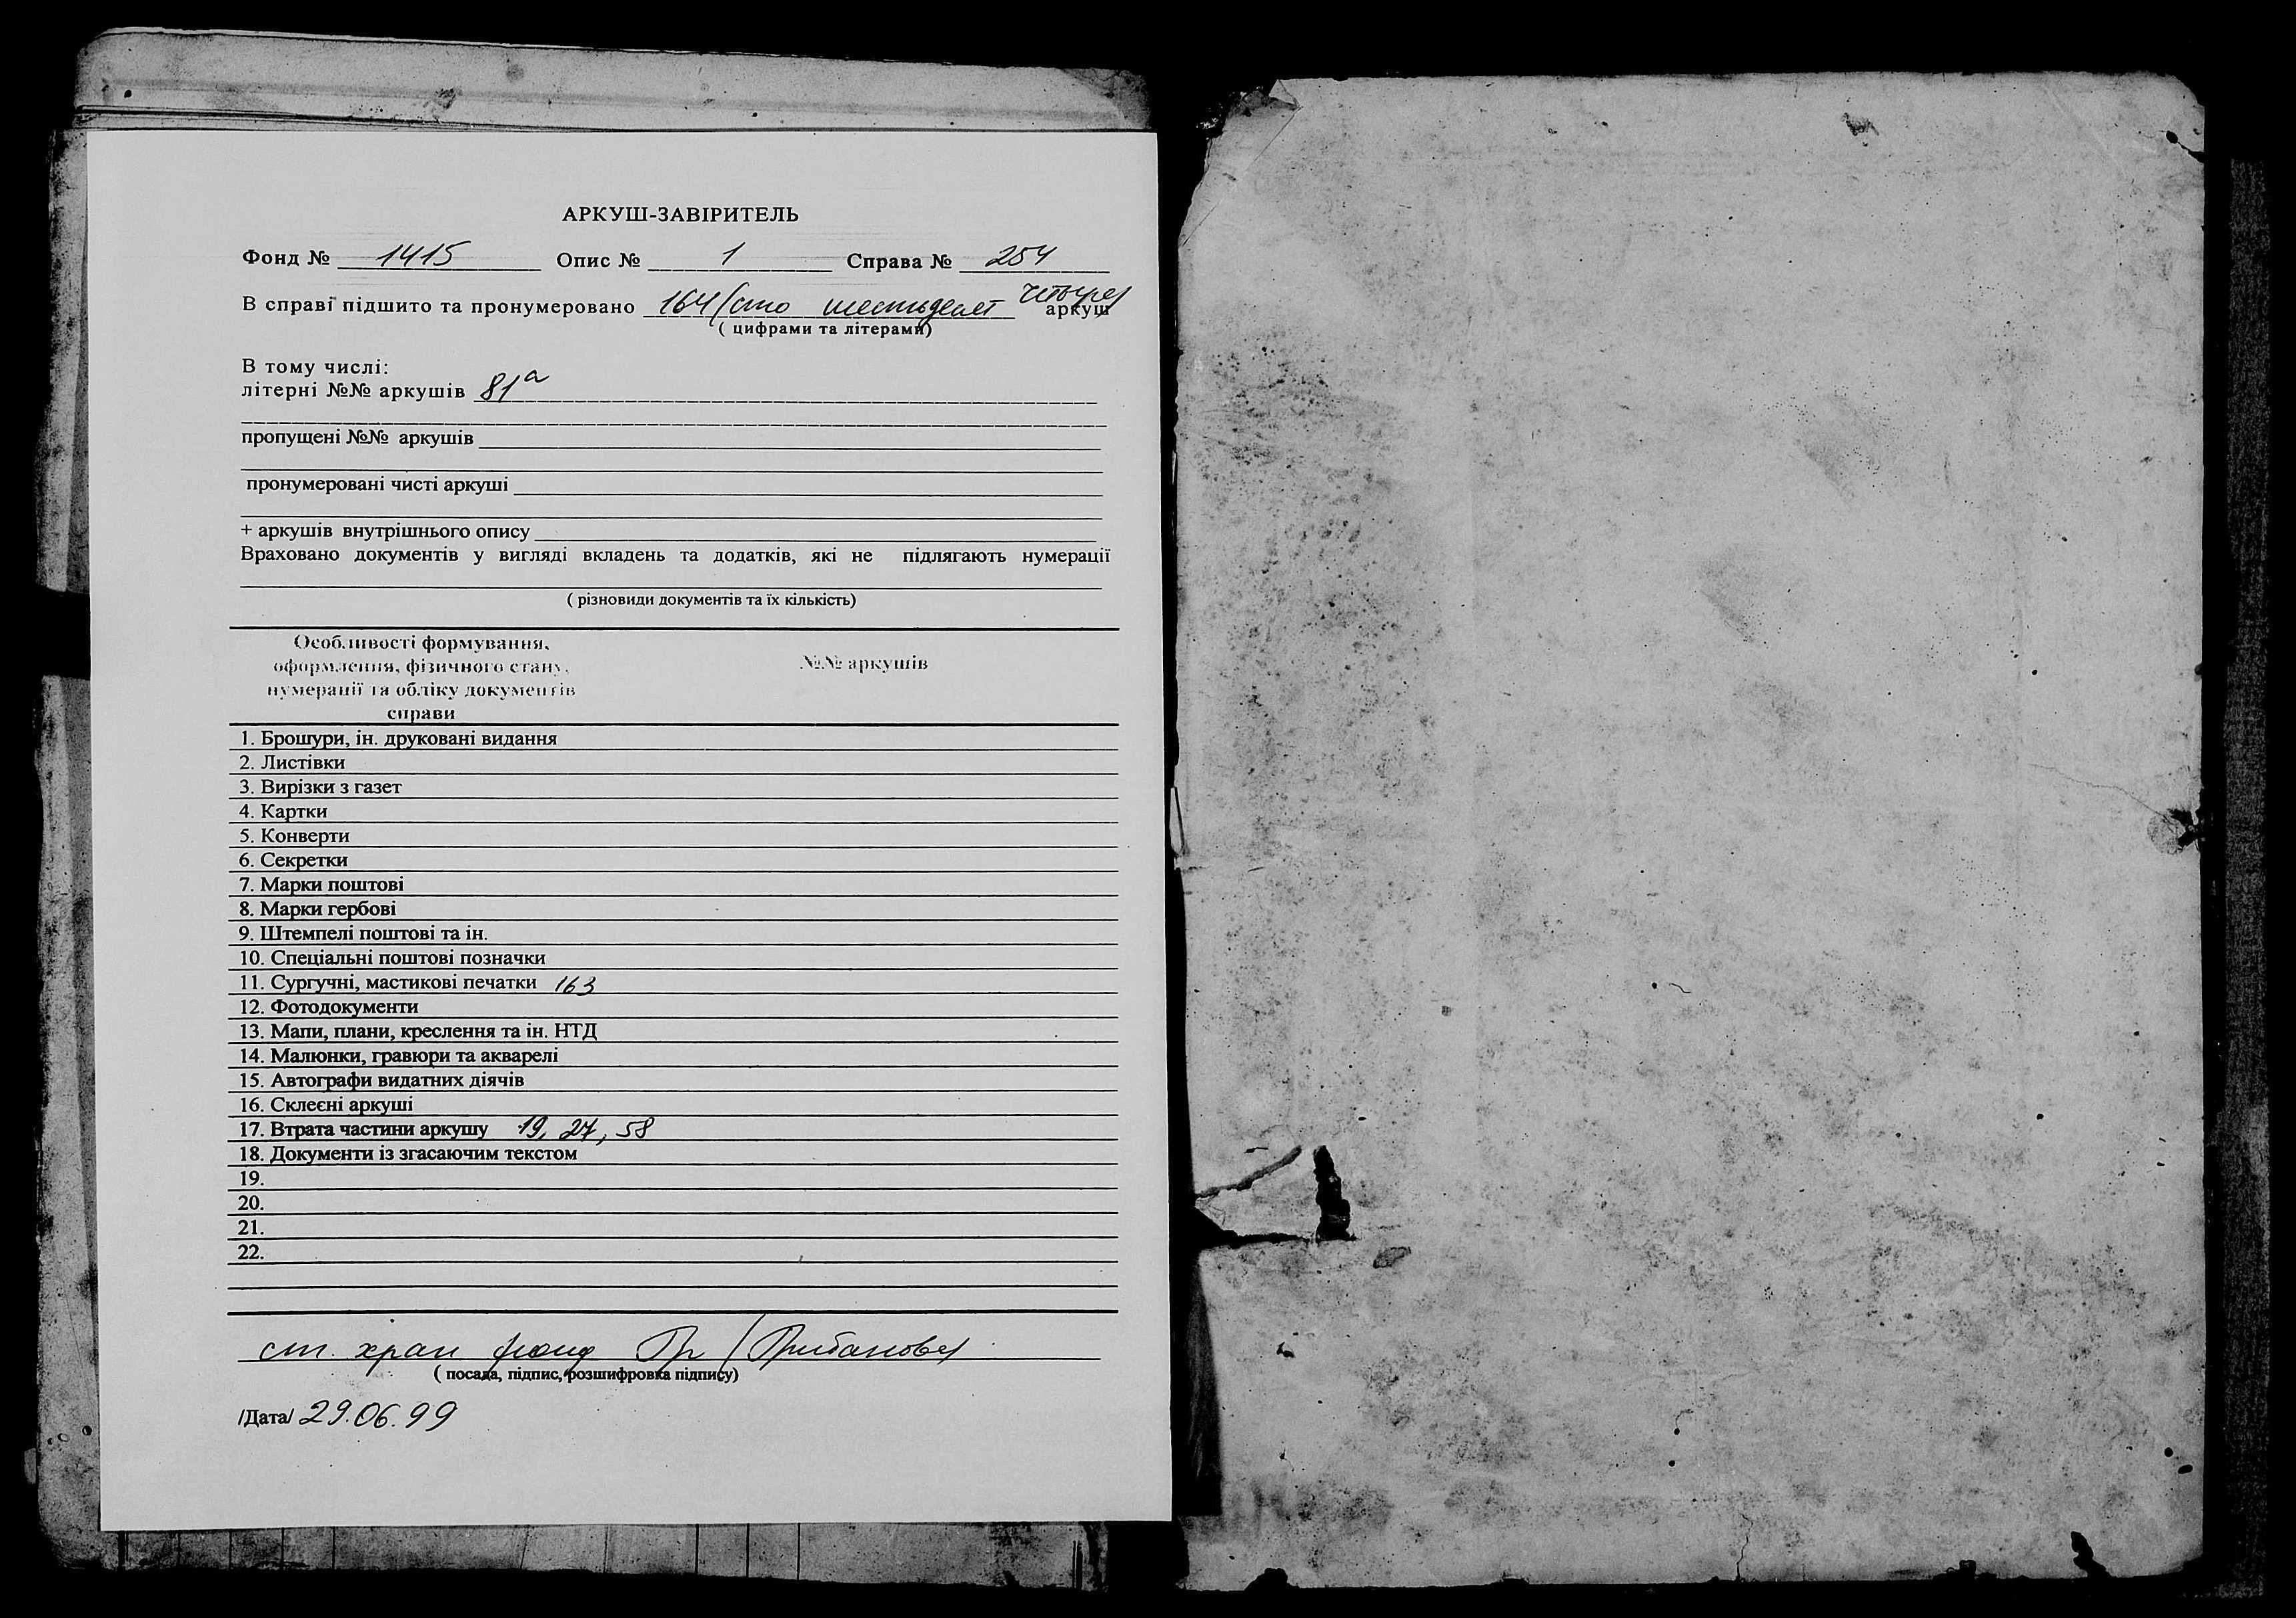 АРКУШ-ЗАВІРИТЕЛЬ
Фонд № 1415 Опис № 1 Справа № 254
В справі підшито та пронумеровано 164 (сто шестьдесят четыре) аркуш
( цифрами та літерами)
В тому числі:
літерні №№ аркушів 81а
пропущені №№ аркушів
пронумеровані чисті аркуші
+ аркушів внутрішнього опису
Враховано документів у вигляді вкладень та додатків, які не підлягають нумерації
( різновиди документів та їх кількість)
Особливості формування,
оформлення, фізичного стану,
нумерації та обліку документів
справи
№№ аркушів
1. Брошури, ін. друковані видання
2. Листівки
3. Вирізки з газет
4. Картки
5. Конверти
6. Секретки
7. Марки поштові
8. Марки гербові
9. Штемпелі поштові та ін.
10. Спеціальні поштові позначки
11. Сургучні, мастикові печатки 163
12. Фотодокументи
13. Мапи, плани, креслення та ін. НТД
14. Малюнки, гравюри та акварелі
15. Автографи видатних діячів
16. Склеєні аркуші
17. Втрата частини аркушу 19, 27, 58
18. Документи із згасаючим текстом
19.
20.
21.
22.
ст. хран фонд
( посада, підпис, розшифровка підпису)
/Дата/ 29.06.99